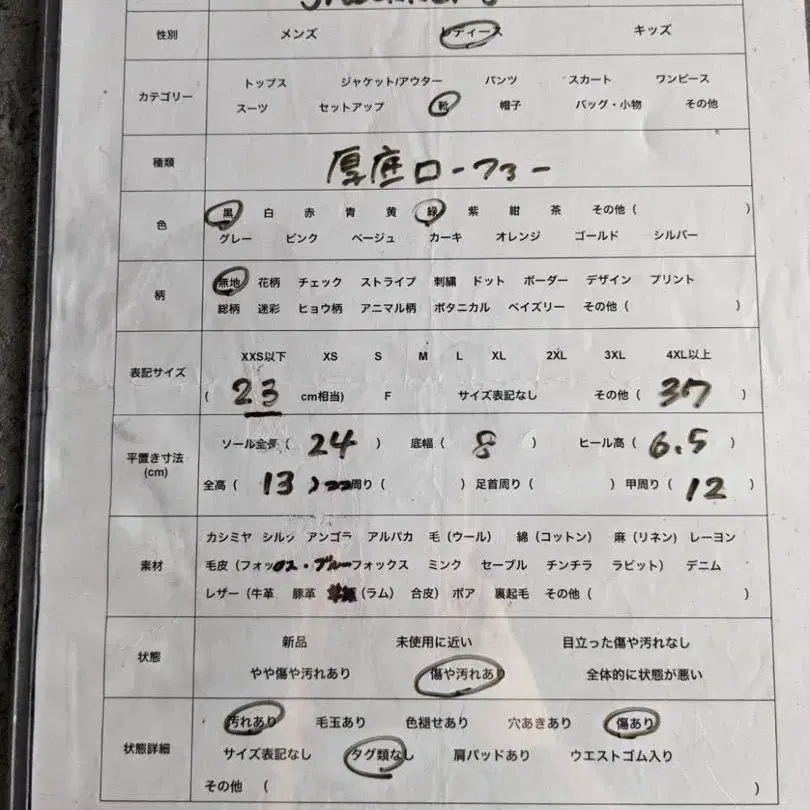 性別 メンズ レディース キッズ
カテゴリー
トップス ジャケット/アウター パンツ スカート ワンピース
スーツ セットアップ 靴 帽子 バッグ・小物 その他
種類 厚底ローファー
色
黒 白 赤 青 黄 緑 紫 紺 茶 その他 ( )
グレー ピンク ベージュ カーキ オレンジ ゴールド シルバー
柄
無地 花柄 チェック ストライプ 刺繍 ドット ボーダー デザイン プリント
総柄 迷彩 ヒョウ柄 アニマル柄 ボタニカル ペイズリー その他 ( )
表記サイズ
XXS以下 XS S M L XL 2XL 3XL 4XL以上
( 23 cm相当) F サイズ表記なし その他 ( 37 )
平置き寸法
(cm)
ソール全長 ( 24 ) 底幅 ( 8 ) ヒール高 ( 6.5 )
全高 ( 13 ) 周り ( ) 足首周り ( ) 甲周り ( 12 )
素材
カシミヤ シルク アンゴラ アルパカ 毛 (ウール) 綿 (コットン) 麻 (リネン) レーヨン
毛皮 (フォックス・ブルーフォックス ミンク セーブル チンチラ ラビット) デニム
レザー (牛革 豚革 (ラム) 合皮) ボア 裏起毛 その他 ( )
状態
新品 未使用に近い 目立った傷や汚れなし
やや傷や汚れあり 傷や汚れあり 全体的に状態が悪い
状態詳細
汚れあり 毛玉あり 色褪せあり 穴あきあり 傷あり
サイズ表記なし タグ類なし 肩パッドあり ウエストゴム入り
その他 ( )